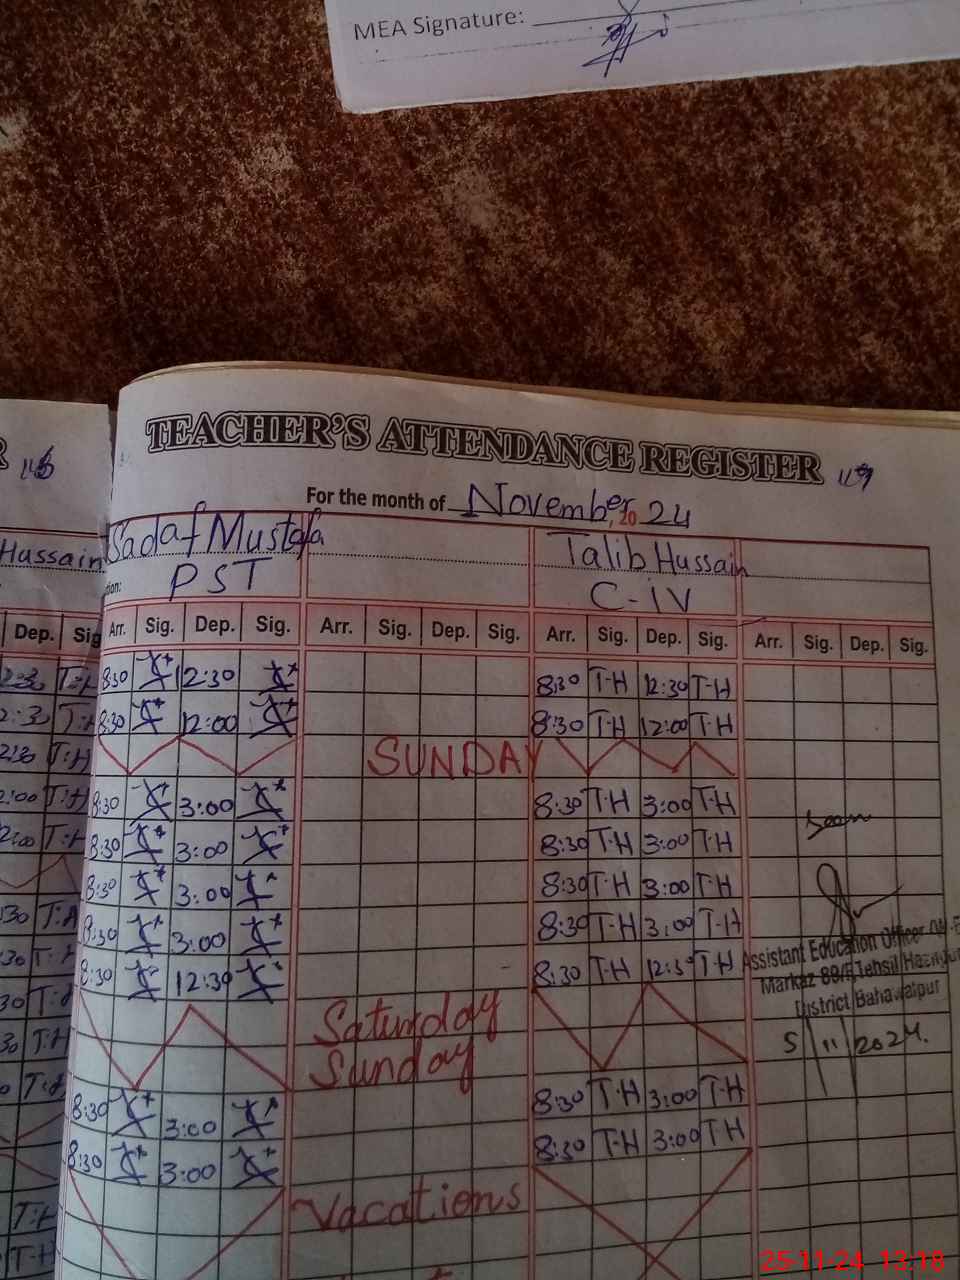 MEA Signature:
TEACHER'S ATTENDANCE REGISTER
For the month of November, 20 24
Hussain Sadaf Mustafa Talib Hussain
tion: PST C-iv
Dep. Sig Arr. Sig. Dep. Sig. Arr. Sig. Dep. Sig. Arr. Sig. Dep. Sig. Arr. Sig. Dep. Sig.
2:30 T:H 8:30 12:30 8:30 T-H 12:30 T-H
2:30 T:H 8:30 12:00 8:30 T-H 12:00 T-H
2:30 T:H SUNDAY
2:00 T:H 8:30 3:00 8:30 T-H 3:00 T-H
2:00 T:H 8:30 3:00 8:30 T-H 3:00 T-H
Seen
8:30 3:00 8:30 T-H 3:00 T-H
:30 T:H 8:30 3:00 8:30 T-H 3:00 T-H
:30 T:H 8:30 12:30 8:30 T-H 12:30 T-H
Assistant Education Officer
Markaz 88/F Tehsil
District Bahawalpur
30 T:H Saturday
30 T:H Sunday
5/11/2024.
0 T:H 8:30 3:00 8:30 T-H 3:00 T-H
8:30 3:00 8:30 T-H 3:00 T H
T:H Vacations
T-H
25-11-24 13:18